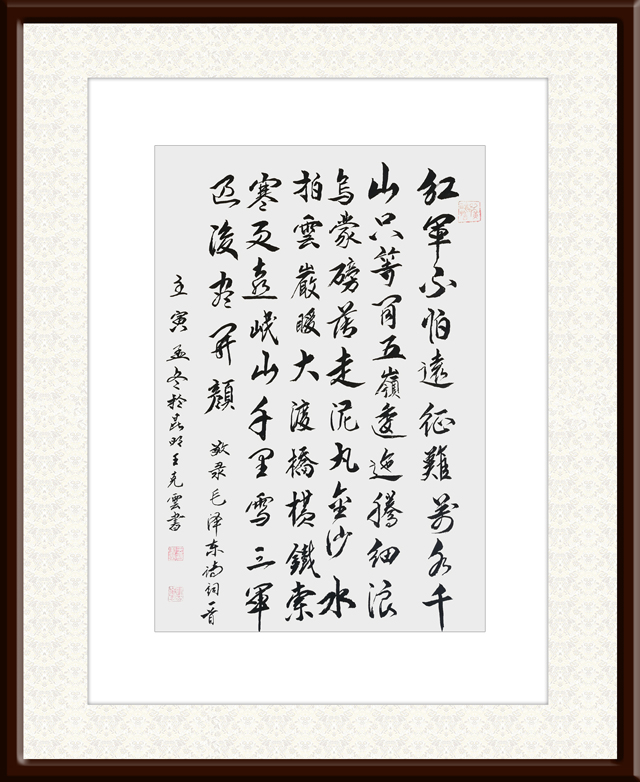 紅軍不怕遠征難萬水千
山只等閒五嶺逶迤騰細浪
烏蒙磅礴走泥丸金沙水
拍雲巖暖大渡橋横鐵索
寒更喜岷山千里雪三軍
过後尽开顏 敬录毛泽东诗词一首
壬寅孟冬於昆明王克雲書